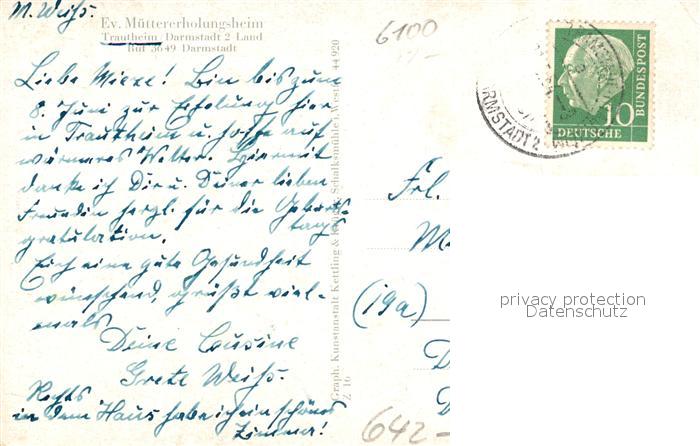 M. Weiß
Ev. Müttererholungsheim
Trautheim Darmstadt 2 Land
Ruf 3649 Darmstadt
Liebe Mieze! Bin bis zum
8. Juni zur Erholung hier
in Trautheim u. hoffe auf
wärmeres Wetter. Hiermit
danke ich Dir u. Deiner lieben
Freundin herzl. für die Geburts-
tags
gratulation.
Euch eine gute Gesundheit
wünschend, grüßt viel-
mals
Deine Cousine
Grete Weiß.
Rechts
in dem Haus habe ich ein schönes
Zimmer!
Graph. Kunstanstalt Kettling & Schalksmühle i. Westf. 44 920
Z 16
6100
DEUTSCHE
BUNDESPOST
10
DARMSTADT 2
Frl.
M
(19a)
D
D
642-
privacy protection
Datenschutz